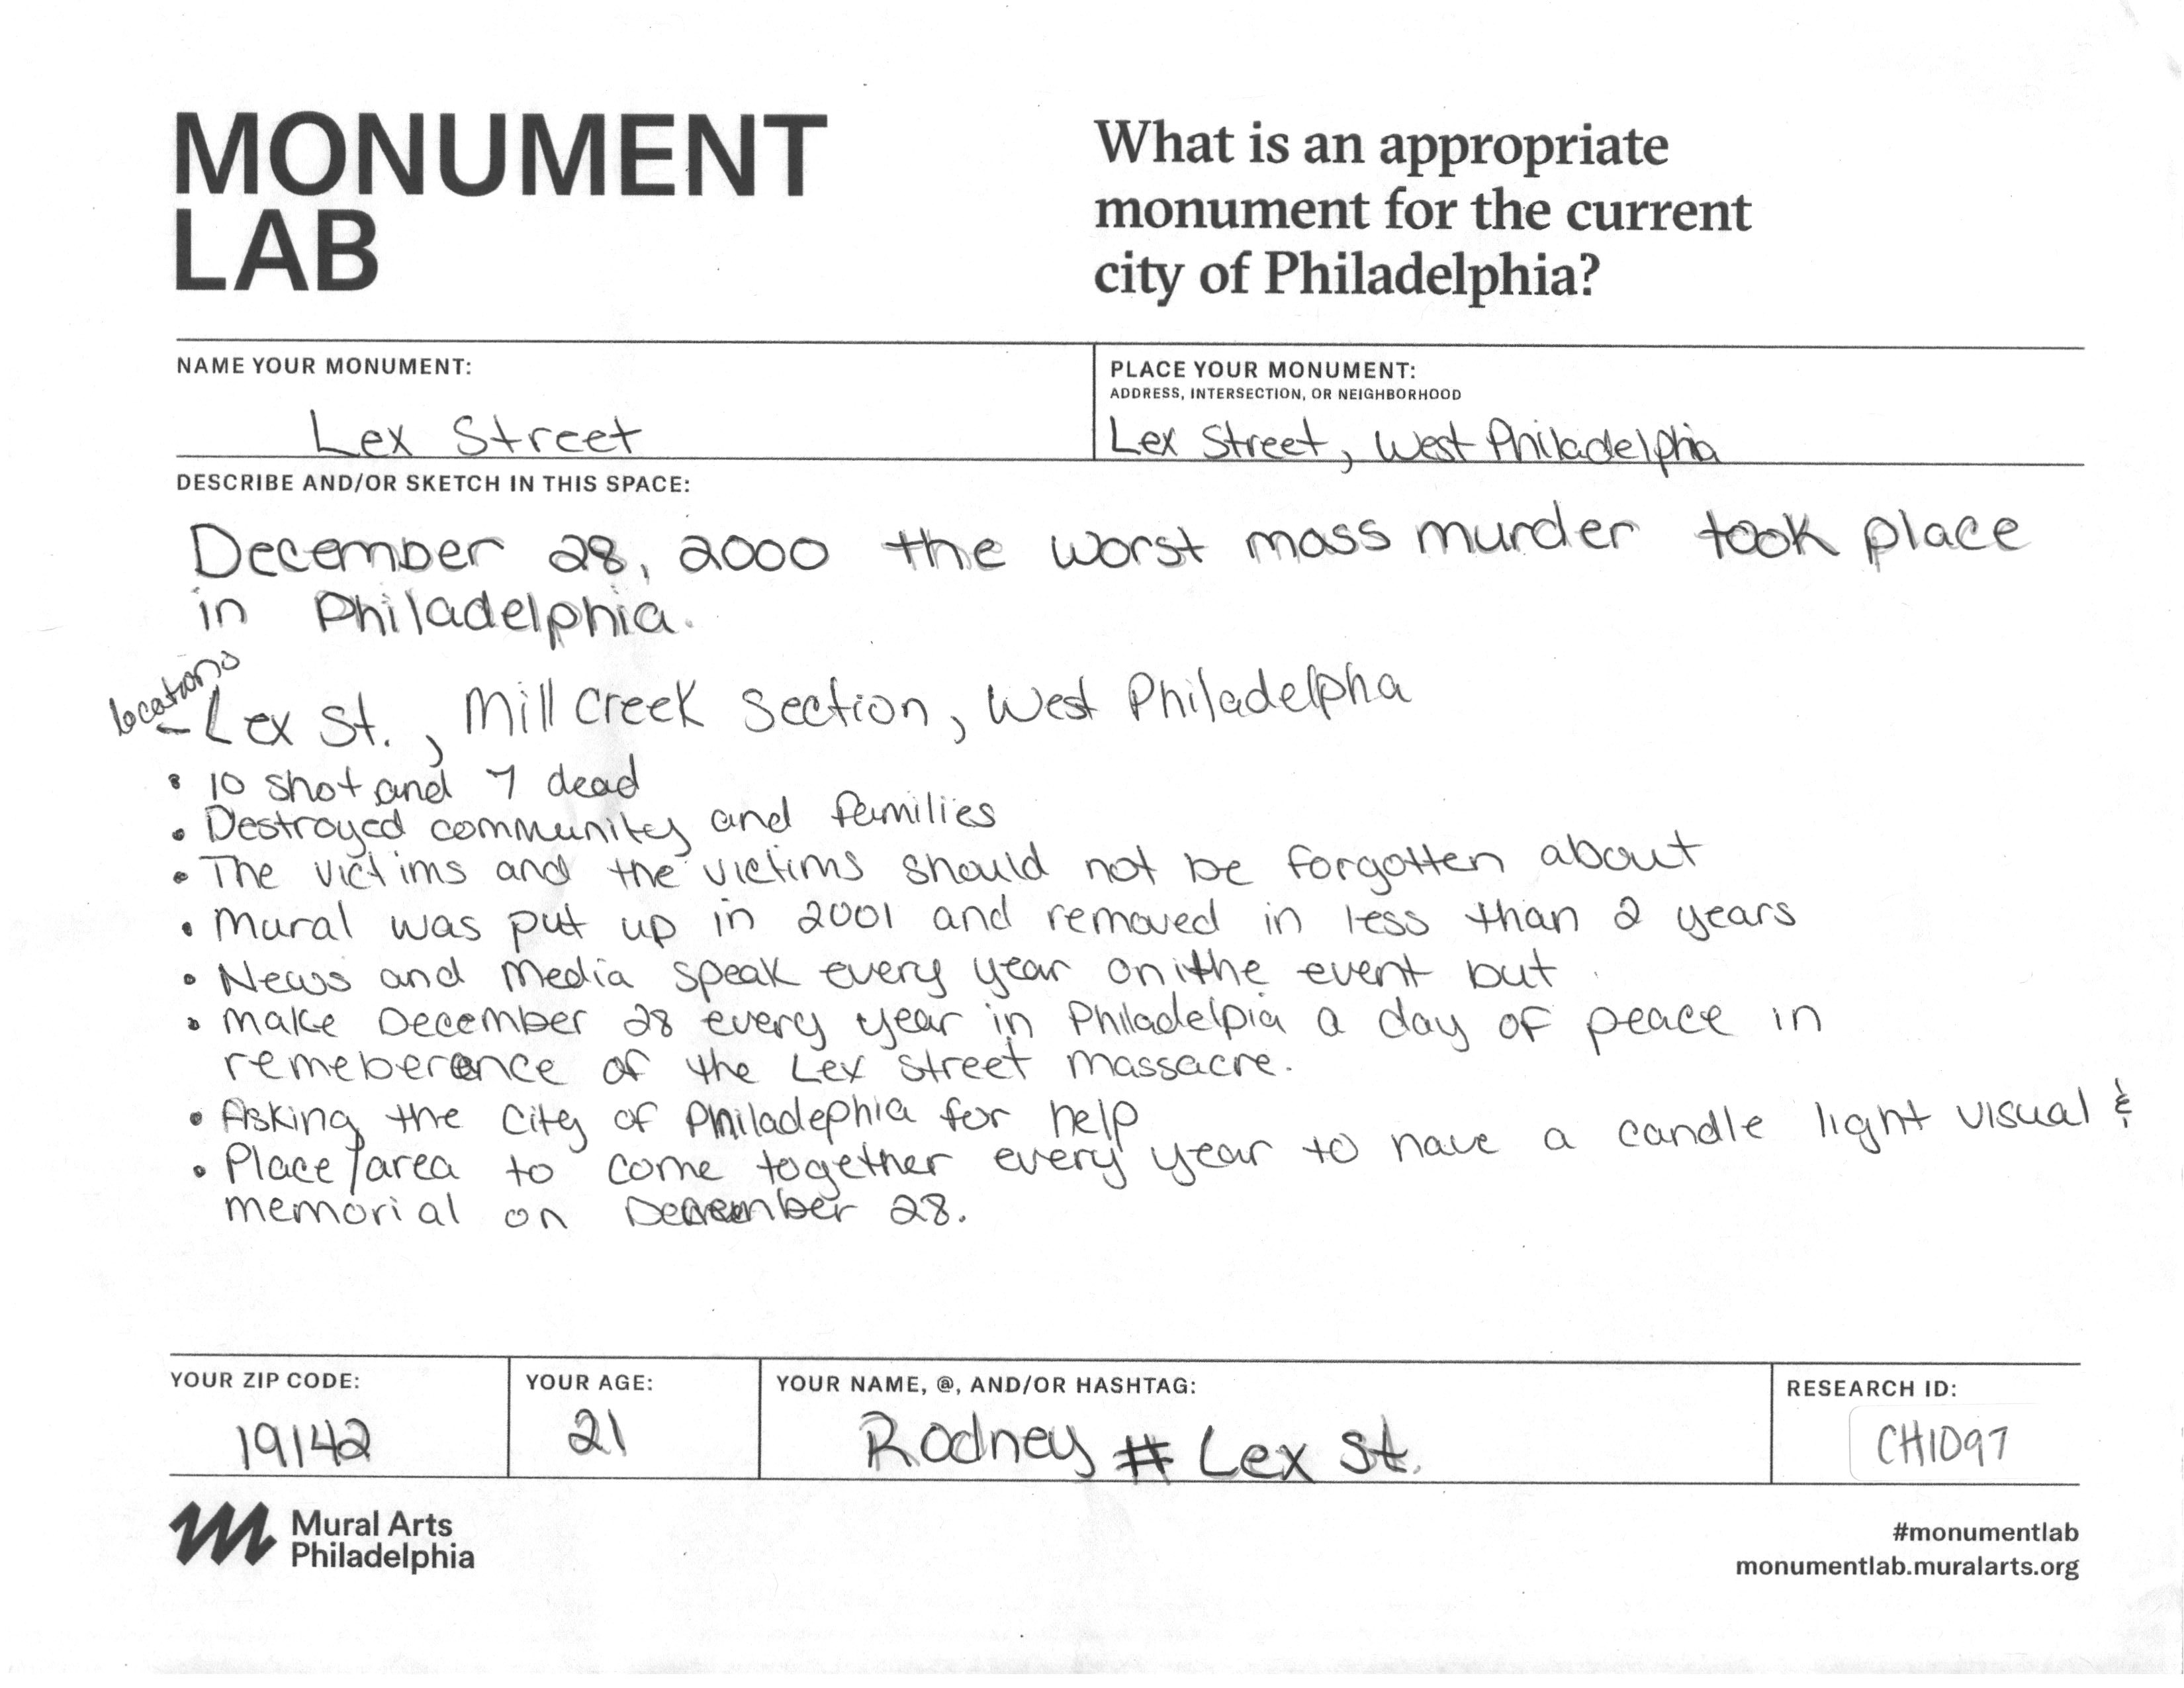 MONUMENT
LAB
What is an appropriate
monument for the current
city of Philadelphia?
NAME YOUR MONUMENT:
Lex Street
PLACE YOUR MONUMENT:
ADDRESS, INTERSECTION, OR NEIGHBORHOOD
Lex Street, West Philadelphia
DESCRIBE AND/OR SKETCH IN THIS SPACE:
December 28, 2000 the worst mass murder took place
in Philadelphia.
locations
- Lex St., Mill Creek Section, West Philadelpha
• 10 shot and 7 dead
• Destroyed community and families
• The victims and the victims should not be forgotten about
• Mural was put up in 2001 and removed in less than 2 years
• News and Media speak every year on the event but
• make December 28 every year in Philadelpia a day of peace in
remeberence of the Lex Street massacre.
• Asking the City of Philadephia for help
• Place/area to come together every year to have a candle light visual &
memorial on December 28.
YOUR ZIP CODE:
19142
YOUR AGE:
21
YOUR NAME, @, AND/OR HASHTAG:
Rodney # Lex St.
RESEARCH ID:
CH1097
Mural Arts
Philadelphia
#monumentlab
monumentlab.muralarts.org